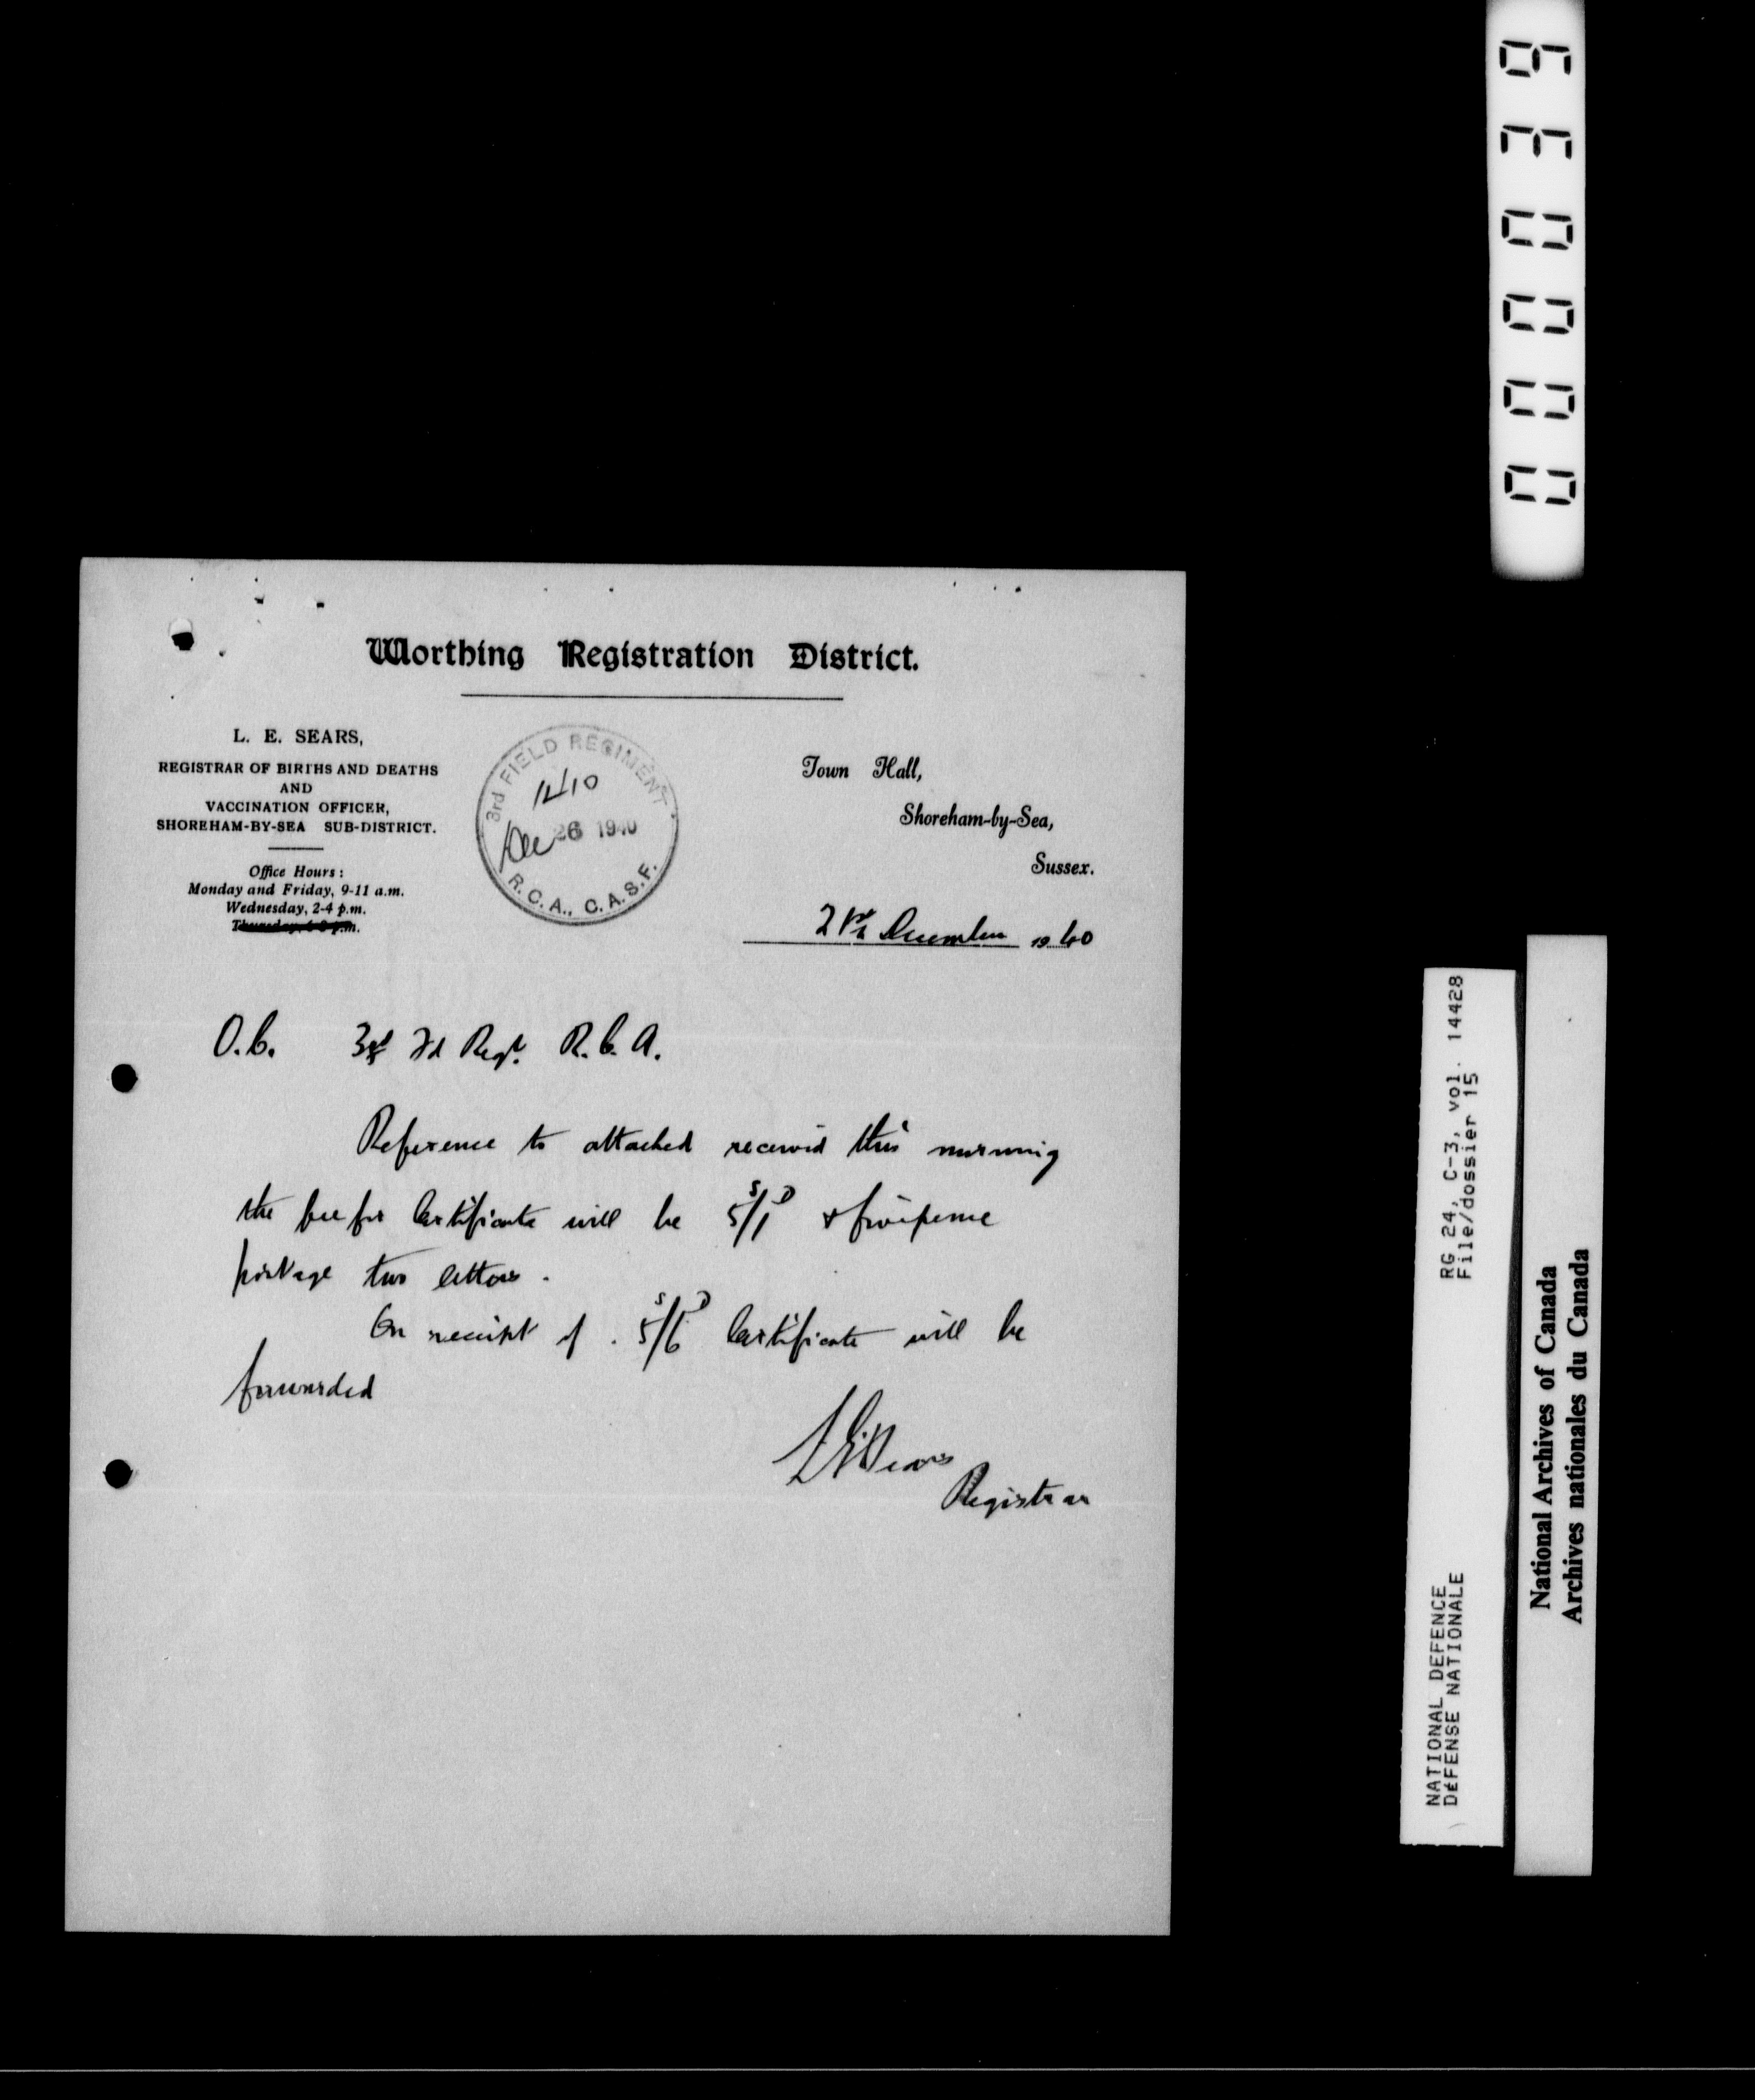 Worthing Registration District.
L. E. SEARS,
REGISTRAR OF BIRTHS AND DEATHS
AND
VACCINATION OFFICER,
SHOREHAM-BY-SEA SUB-DISTRICT.
Office Hours:
Monday and Friday, 9-11 a.m.
Wednesday, 2-4 p.m.
Thursday, 6-8 p.m.
3rd FIELD REGIMENT
Dec 26 1940
R.C.A., C.A.S.F.
Town Hall,
Shoreham-by-Sea,
Sussex.
21st December 1940
O.C. 3rd Fd Regt. R.C.A.
Reference to attached received this morning
the fee for Certificate will be 5S/1D & fivepence
postage two letters.
On receipt of 5S/6D Certificate will be
forwarded
L E Sears
Registrar
000039
RG 24, C-3, vol. 14428
File/dossier 15
NATIONAL DEFENCE
DÉFENSE NATIONALE
National Archives of Canada
Archives nationales du Canada